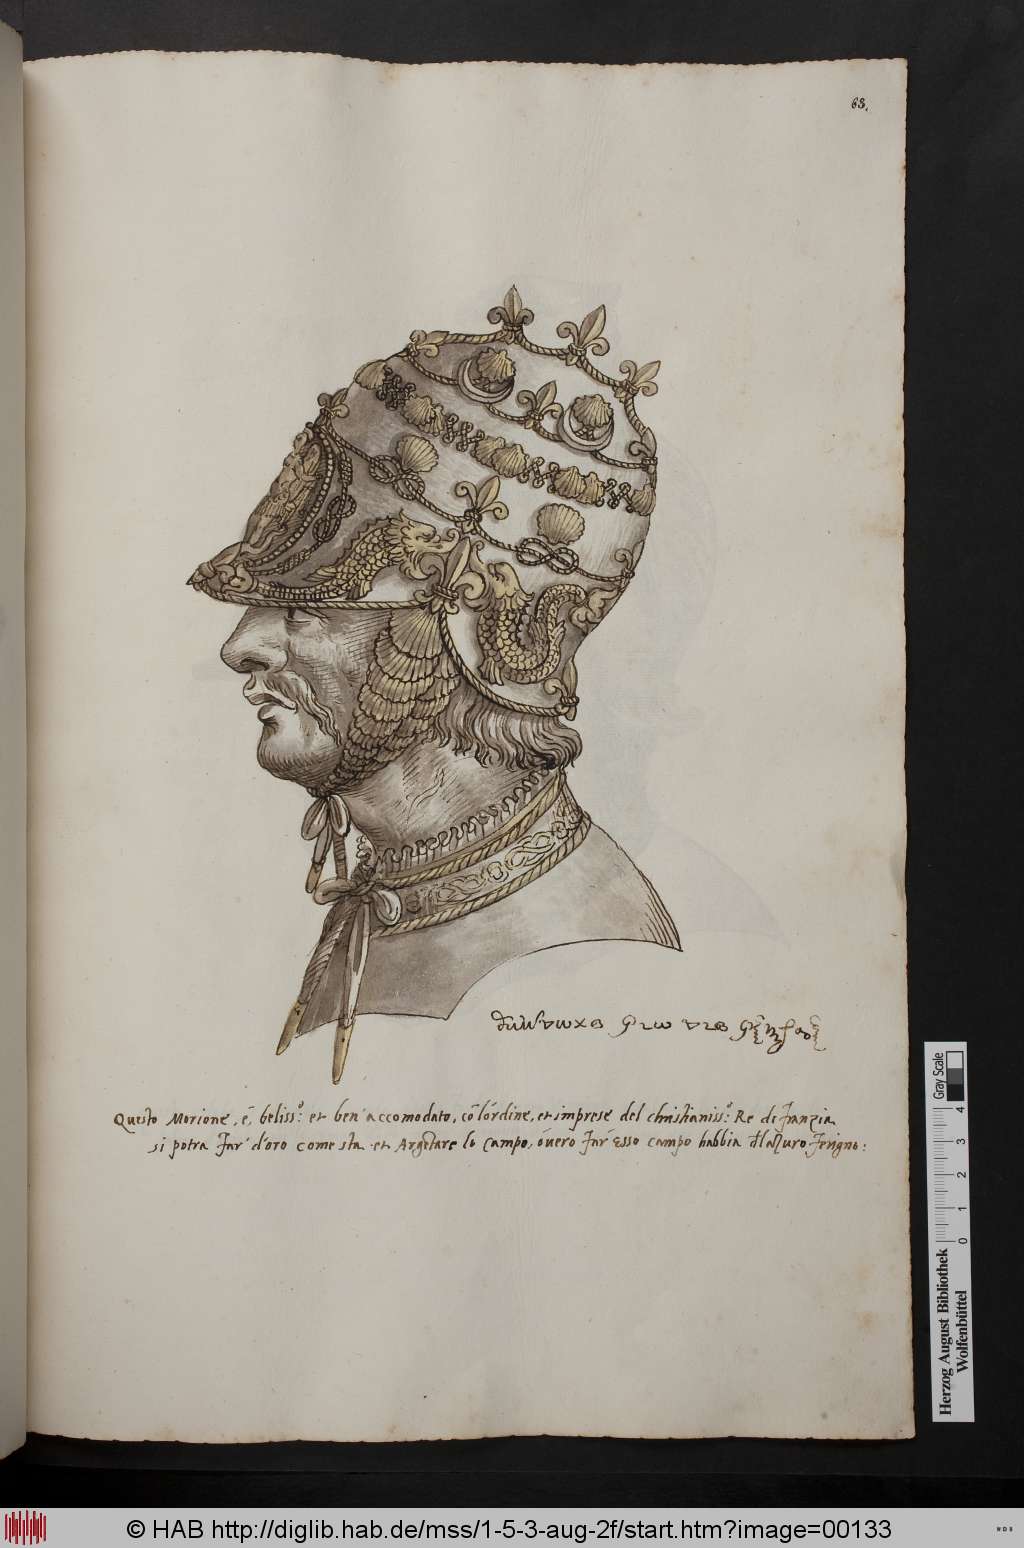 63.
Questo Morione, é, beliss.º et ben' accomodato, cõ l'ordine, et imprese del christianiss.º Re di franzia
si potra far' d'oro come sta et Argẽtare lo campo, óvero far' esso campo habbia d'l'aZuro ferigno:
Gray Scale
0 1 2 3 4
Herzog August Bibliothek
Wolfenbüttel
© HAB http://diglib.hab.de/mss/1-5-3-aug-2f/start.htm?image=00133